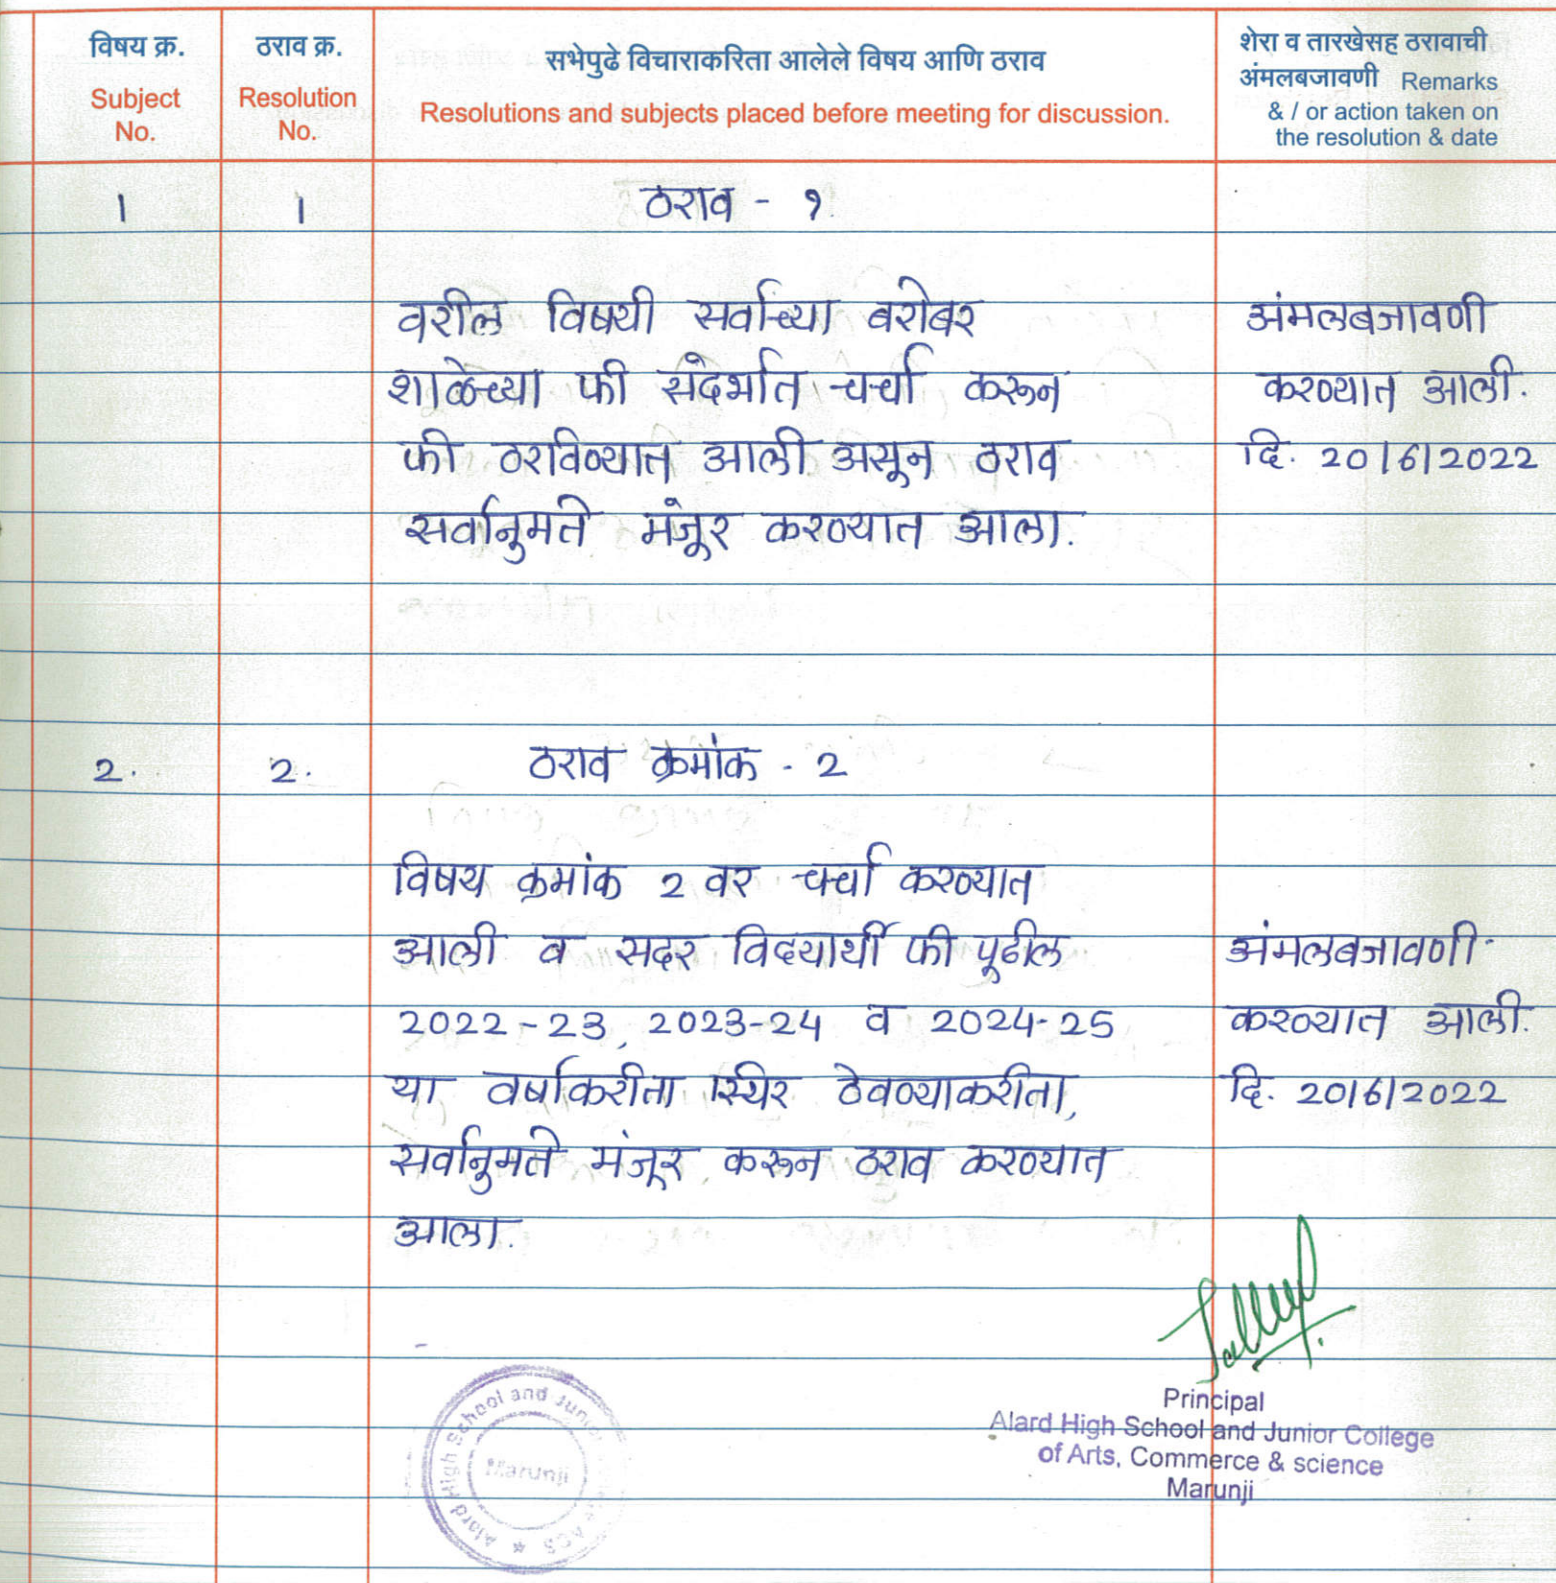 विषय क्र.
Subject
No.
ठराव क्र.
Resolution
No.
सभेपुढे विचाराकरिता आलेले विषय आणि ठराव
Resolutions and subjects placed before meeting for discussion.
शेरा व तारखेसह ठरावाची
अंमलबजावणी Remarks
& / or action taken on
the resolution & date
1 1 ठराव - १
वरील विषयी सर्वांच्या बरोबर
शाळेच्या फी संदर्भात चर्चा करून
फी ठरविण्यात आली असून ठराव
सर्वानुमते मंजूर करण्यात आला.
अंमलबजावणी
करण्यात आली.
दि. 20/6/2022
2. 2. ठराव क्रमांक - 2
विषय क्रमांक 2 वर चर्चा करण्यात
आली व सदर विद्यार्थी फी पुढील
2022-23, 2023-24 व 2024-25
या वर्षाकरीता स्थिर ठेवण्याकरीता,
सर्वानुमते मंजूर करून ठराव करण्यात
आला.
अंमलबजावणी
करण्यात आली.
दि. 20/6/2022
Principal
Alard High School and Junior College
of Arts, Commerce & science
Marunji
Alard High School and Junior ACS
Marunji